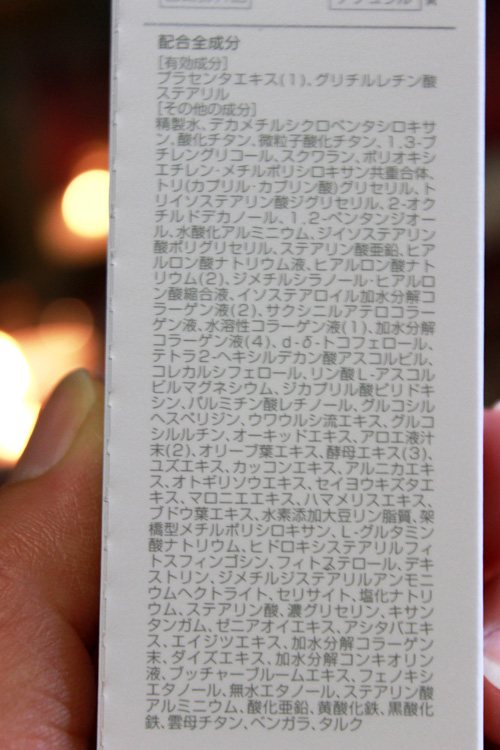 配合全成分
[有効成分]
プラセンタエキス(1)、グリチルレチン酸
ステアリル
[その他の成分]
精製水、デカメチルシクロペンタシロキサ
ン、酸化チタン、微粒子酸化チタン、1,3-ブ
チレングリコール、スクワラン、ポリオキシ
エチレン・メチルポリシロキサン共重合体、
トリ(カプリル・カプリン酸)グリセリル、ト
リイソステアリン酸ジグリセリル、2-オク
チルドデカノール、1,2-ペンタンジオー
ル、水酸化アルミニウム、ジイソステアリン
酸ポリグリセリル、ステアリン酸亜鉛、ヒア
ルロン酸ナトリウム液、ヒアルロン酸ナト
リウム(2)、ジメチルシラノール・ヒアルロ
ン酸縮合液、イソステアロイル加水分解コ
ラーゲン液(2)、サクシニルアテロコラー
ゲン液、水溶性コラーゲン液(1)、加水分解
コラーゲン液(4)、d-δ-トコフェロール、
テトラ2-ヘキシルデカン酸アスコルビル、
コレカルシフェロール、リン酸L-アスコル
ビルマグネシウム、ジカプリル酸ピリドキ
シン、パルミチン酸レチノール、グルコシル
ヘスペリジン、ウワウルシ流エキス、グルコ
シルルチン、オーキッドエキス、アロエ液汁
末(2)、オリーブ葉エキス、酵母エキス(3)、
ユズエキス、カッコンエキス、アルニカエキ
ス、オトギリソウエキス、セイヨウキズタエ
キス、マロニエエキス、ハマメリスエキス、
ブドウ葉エキス、水素添加大豆リン脂質、架
橋型メチルポリシロキサン、L-グルタミン
酸ナトリウム、ヒドロキシステアリルフィ
トスフィンゴシン、フィトステロール、デキ
ストリン、ジメチルジステアリルアンモニ
ウムヘクトライト、セリサイト、塩化ナトリ
ウム、ステアリン酸、濃グリセリン、キサン
タンガム、ゼニアオイエキス、アシタバエキ
ス、エイジツエキス、加水分解コラーゲン
末、ダイズエキス、加水分解コンキオリン
液、ブッチャーブルームエキス、フェノキシ
エタノール、無水エタノール、ステアリン酸
アルミニウム、酸化亜鉛、黄酸化鉄、黒酸化
鉄、雲母チタン、ベンガラ、タルク